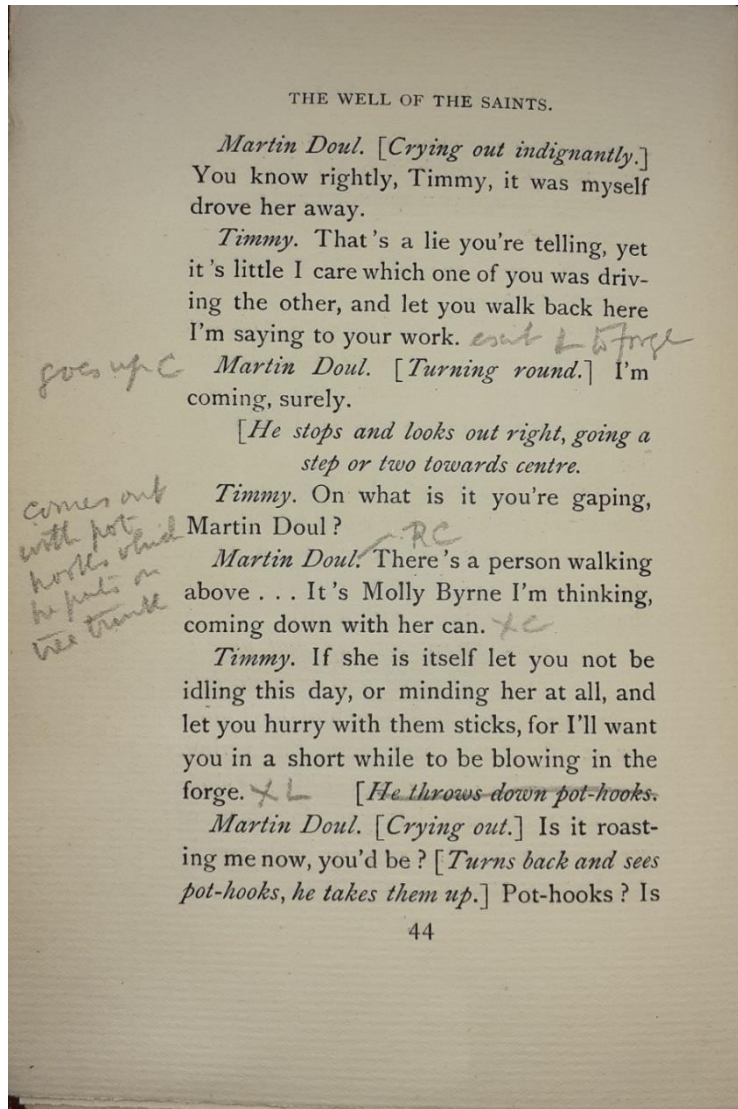 THE WELL OF THE SAINTS.
Martin Doul. [Crying out indignantly.]
You know rightly, Timmy, it was myself
drove her away.
Timmy. That's a lie you're telling, yet
it's little I care which one of you was driv-
ing the other, and let you walk back here
I'm saying to your work. exit L to forge
goes up C
Martin Doul. [Turning round.] I'm
coming, surely.
[He stops and looks out right, going a
step or two towards centre.
comes out
with pot
hooks which
he puts on
tree trunk
Timmy. On what is it you're gaping,
Martin Doul?
RC
Martin Doul. There's a person walking
above . . . It's Molly Byrne I'm thinking,
coming down with her can. X C
Timmy. If she is itself let you not be
idling this day, or minding her at all, and
let you hurry with them sticks, for I'll want
you in a short while to be blowing in the
forge. X L [He throws down pot-hooks.
Martin Doul. [Crying out.] Is it roast-
ing me now, you'd be? [Turns back and sees
pot-hooks, he takes them up.] Pot-hooks? Is
44